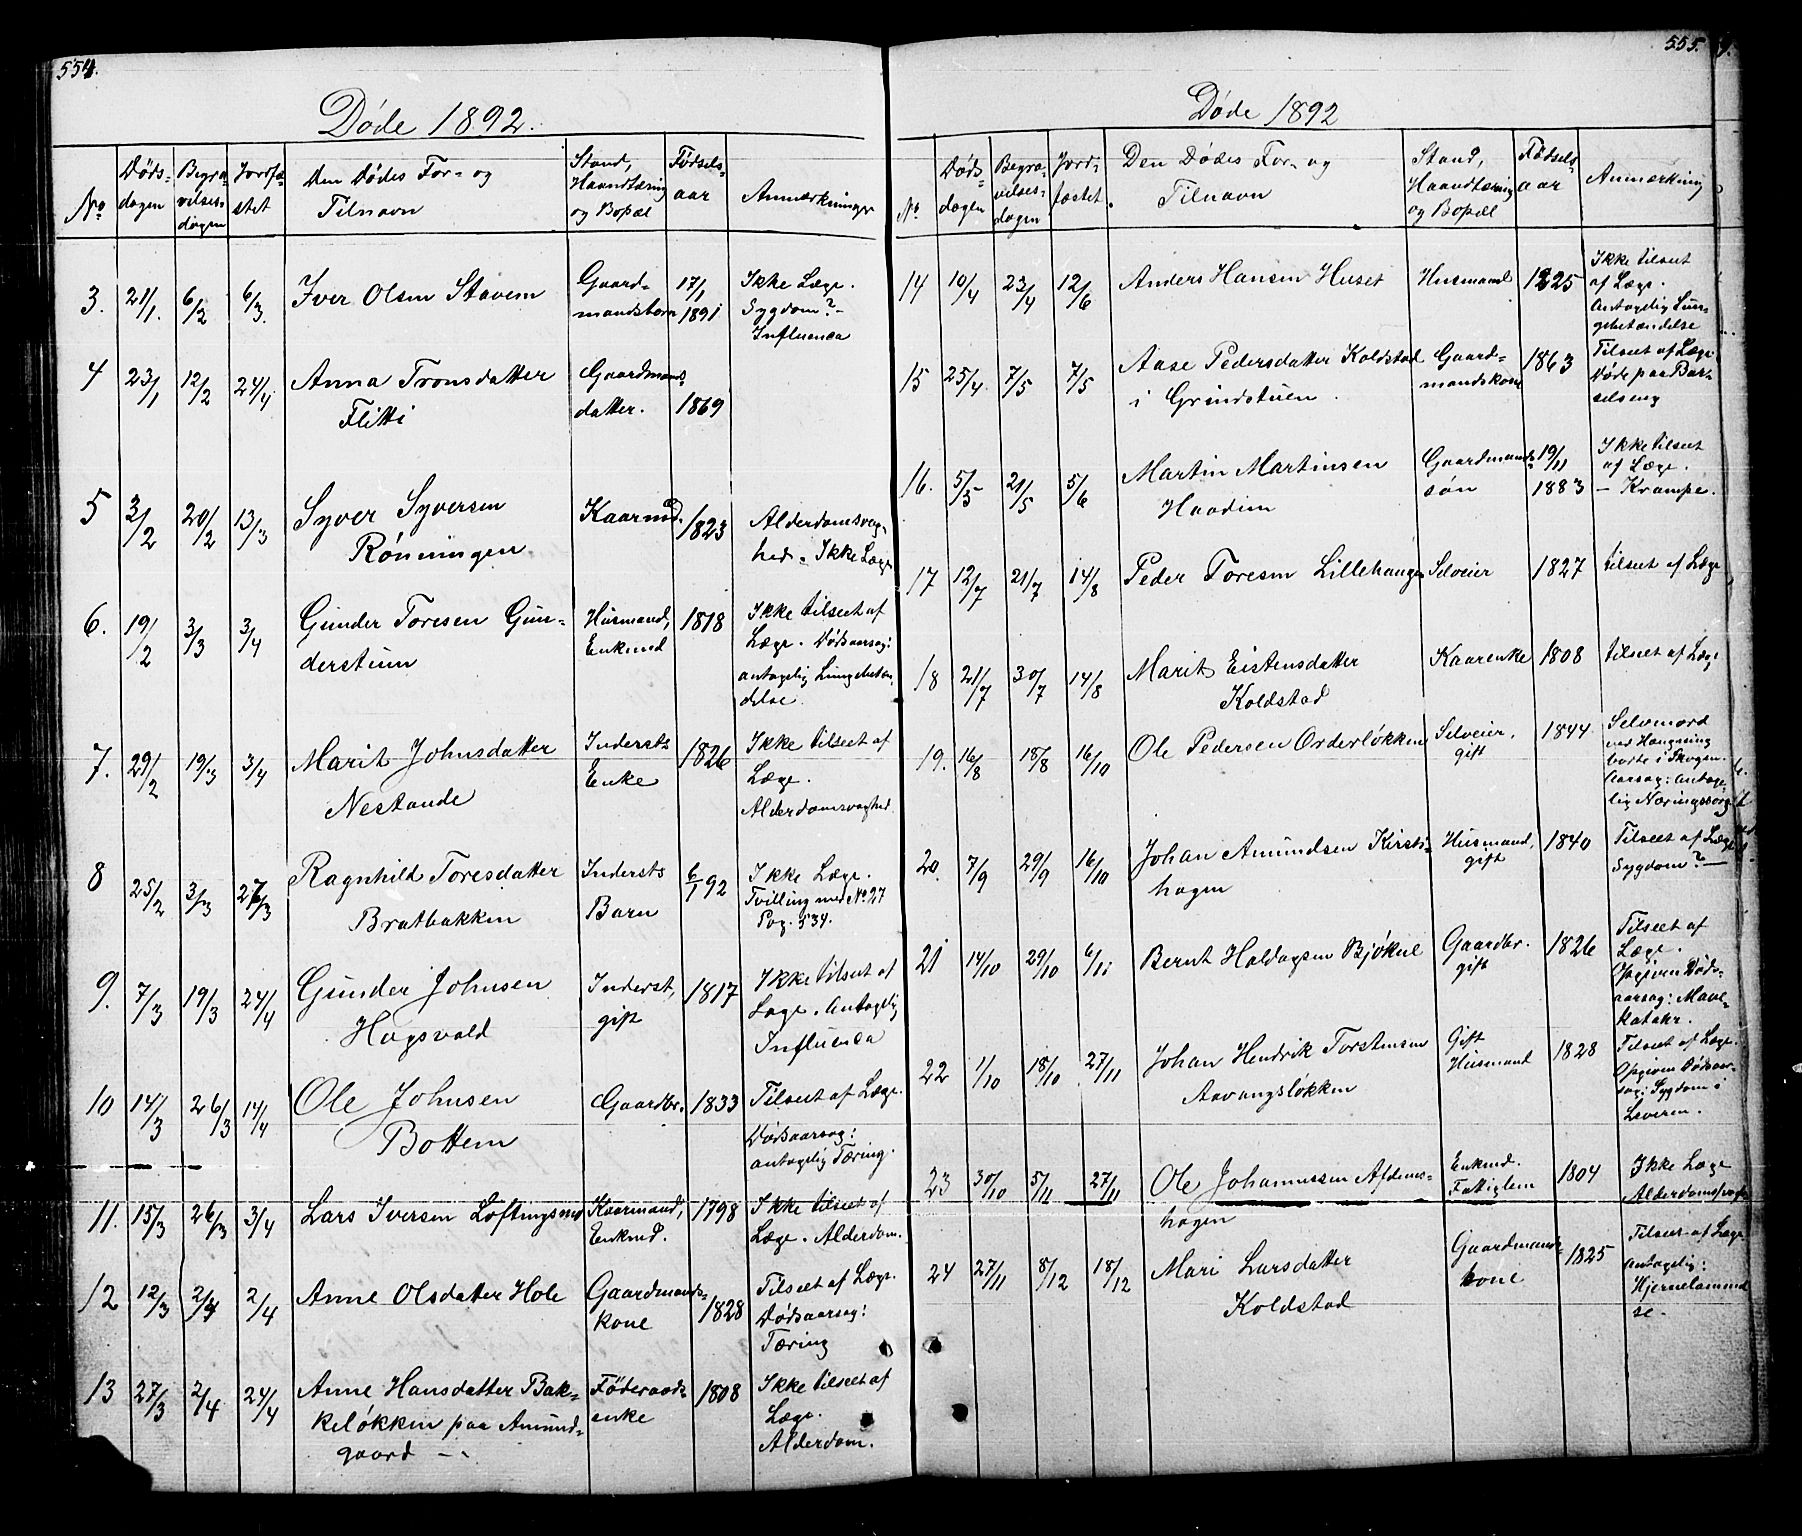 554.
Døde 1892.
No
Døds-
dagen
Begra-
velses-
dagen
Jordfæ-
stet
Den Dødes For- og
Tilnavn
Stand,
Haandtæring
og Bopæl
Fødsels-
aar
Anmærkninger
3. 21/1. 6/2 6/3. Iver Olsen Stavem
Gaard-
mandsbarn
17/1
1891
Ikke Læge.
Sygdom?-
Influenca
4 23/1 12/2 24/4 Anna Tronsdatter
Flitti
Gaardmands-
datter.
1869
5 3/2 20/2 13/3 Syver Syversen
Rönningen
Kaarmd. 1823
Alderdomsvag-
hed. Ikke Læge
6. 19/2 3/3 3/4 Gunder Toresen Gun-
derstuen
Husmand,
Enkmd
1818
Ikke tilseet af
Læge. Dødsaarsag:
antagelig Lungebetæn-
delse.
7. 29/2 19/3 3/4 Marit Johnsdatter
Nestande
Inderst-
Enke
1826
Ikke tilseet af
Læge.
Alderdomsvaghed.
8 25/2 3/3 27/3 Ragnhild Toresdatter
Bratbakken
Indersts
Barn
6/1 92
Ikke Læge.
Tvilling med No 27
Pag. 534.
9. 7/3 19/3 24/4 Gunder Johnsen
Hagsvold
Inderst,
gift
1817
Ikke tilseet af
Læge. Antagelig
Influenca
10 14/3 26/3 14/4 Ole Johnsen
Bottem
Gaardbr. 1833
Tilseet af Læge.
Dødsaarsag:
antagelig Tæring.
11. 15/3 26/3 3/4 Lars Iversen Løftingsmo
Kaarmand,
Enkmd.
1798
Ikke tilseet af
Læge. Alderdom.
12 12/3 2/4 2/4 Anne Olsdatter Hole
Gaardmands-
kone
1828
Tilseet af Læge.
Dødsaarsag:
Tæring
13 27/3 2/4 24/4 Anne Hansdatter Bak-
keløkken paa Amund-
gaard
Föderaads-
enke
1808
Ikke tilseet af
Læge.
Alderdom.
555.
Døde 1892
No.
Døds-
dagen
Begra-
velses-
dagen
Jord-
fæstet.
Den Dødes For- og
Tilnavn
Stand,
Haandtæring
og Bopæl
Fødsels-
aar
Anmærkning
14 10/4 23/4 12/6 Anders Hansen Huset
Husmand 1825
Ikke tilseet
af Læge.
Antagelig Lun-
gebetændelse
15 25/4. 7/5 7/5 Aase Pedersdatter Koldstad
i Grindstuen.
Gaard-
mandskone
1863
Tilseet af Læge
Døde paa Bar-
selseng
16. 5/5 21/5 5/6 Martin Martinsen
Haadem
Gaardmands-
søn
19/11
1883
Ikke tilseet
af Læge.
- Krampe.
17 12/7 21/7 14/8 Peder Toresen Lillehaugen
Selveier 1827 tilseet af Læge
18 21/7 30/7 14/8 Marit Eistensdatter
Koldstad
Kaarenke 1808 tilseet af Læge
19. 16/8 18/8 16/10 Ole Pedersen Orderløkken
Selveier,
gift
1844
Selvmord
ved Hængning
borte i Skogen.
Aarsag: Antage-
lig Næringssorg
20. 7/9 29/9 16/10 Johan Amundsen Kirsti-
hagen
Husmand,
gift
1840
Tilseet af Læge
Sygdom?-
21 14/10 29/10 6/11 Bernt Haldagsen Bjøkne
Gaardbr.
gift
1826
Tilseet af
Læge.
Opgiven Døds-
aarsag: Mave-
katahr.
22 1/10 18/10 27/11 Johan Hendrik Torstensen
Aavangsløkken
Gift
Husmand
1828
Tilseet af Læge.
Opgiven Dødsaar-
sag: Sygdom i
Leveren.
23 30/10 5/11 27/11 Ole Johannessen Afdems-
hagen
Enkmd.
Fattiglem
1804
Ikke Læge
24 27/11 8/12 18/12 Mari Larsdatter
Koldstad
Gaardmands-
kone
1825
Tilseet af Læge
antagelig:
Hjernelammel-
se.